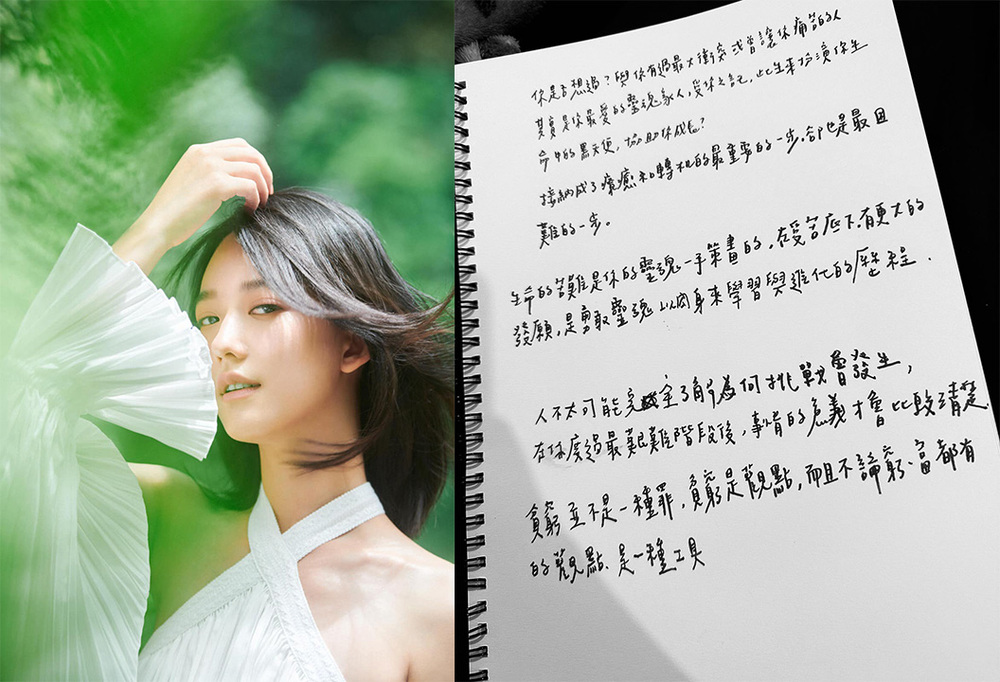 你是否想過？與你有過最大衝突或曾讓你痛苦的人
其實是你最愛的靈魂家人，受你之託，此生來扮演你生
命中的黑天使，協助你成長？
接納成了療癒和轉機的最重要的一步。卻也是最困
難的一步。
生命的苦難是你的靈魂一手策畫的。在受苦底下有更大的
發願，是勇敢靈魂以肉身來學習與進化的歷程．
人不太可能完全了解為何挑戰會發生，
在你度過最艱難階段後，事情的意義才會比較清楚．
貧窮並不是一種罪，貧窮是觀點，而且不論窮富都有
的觀點．是一種工具